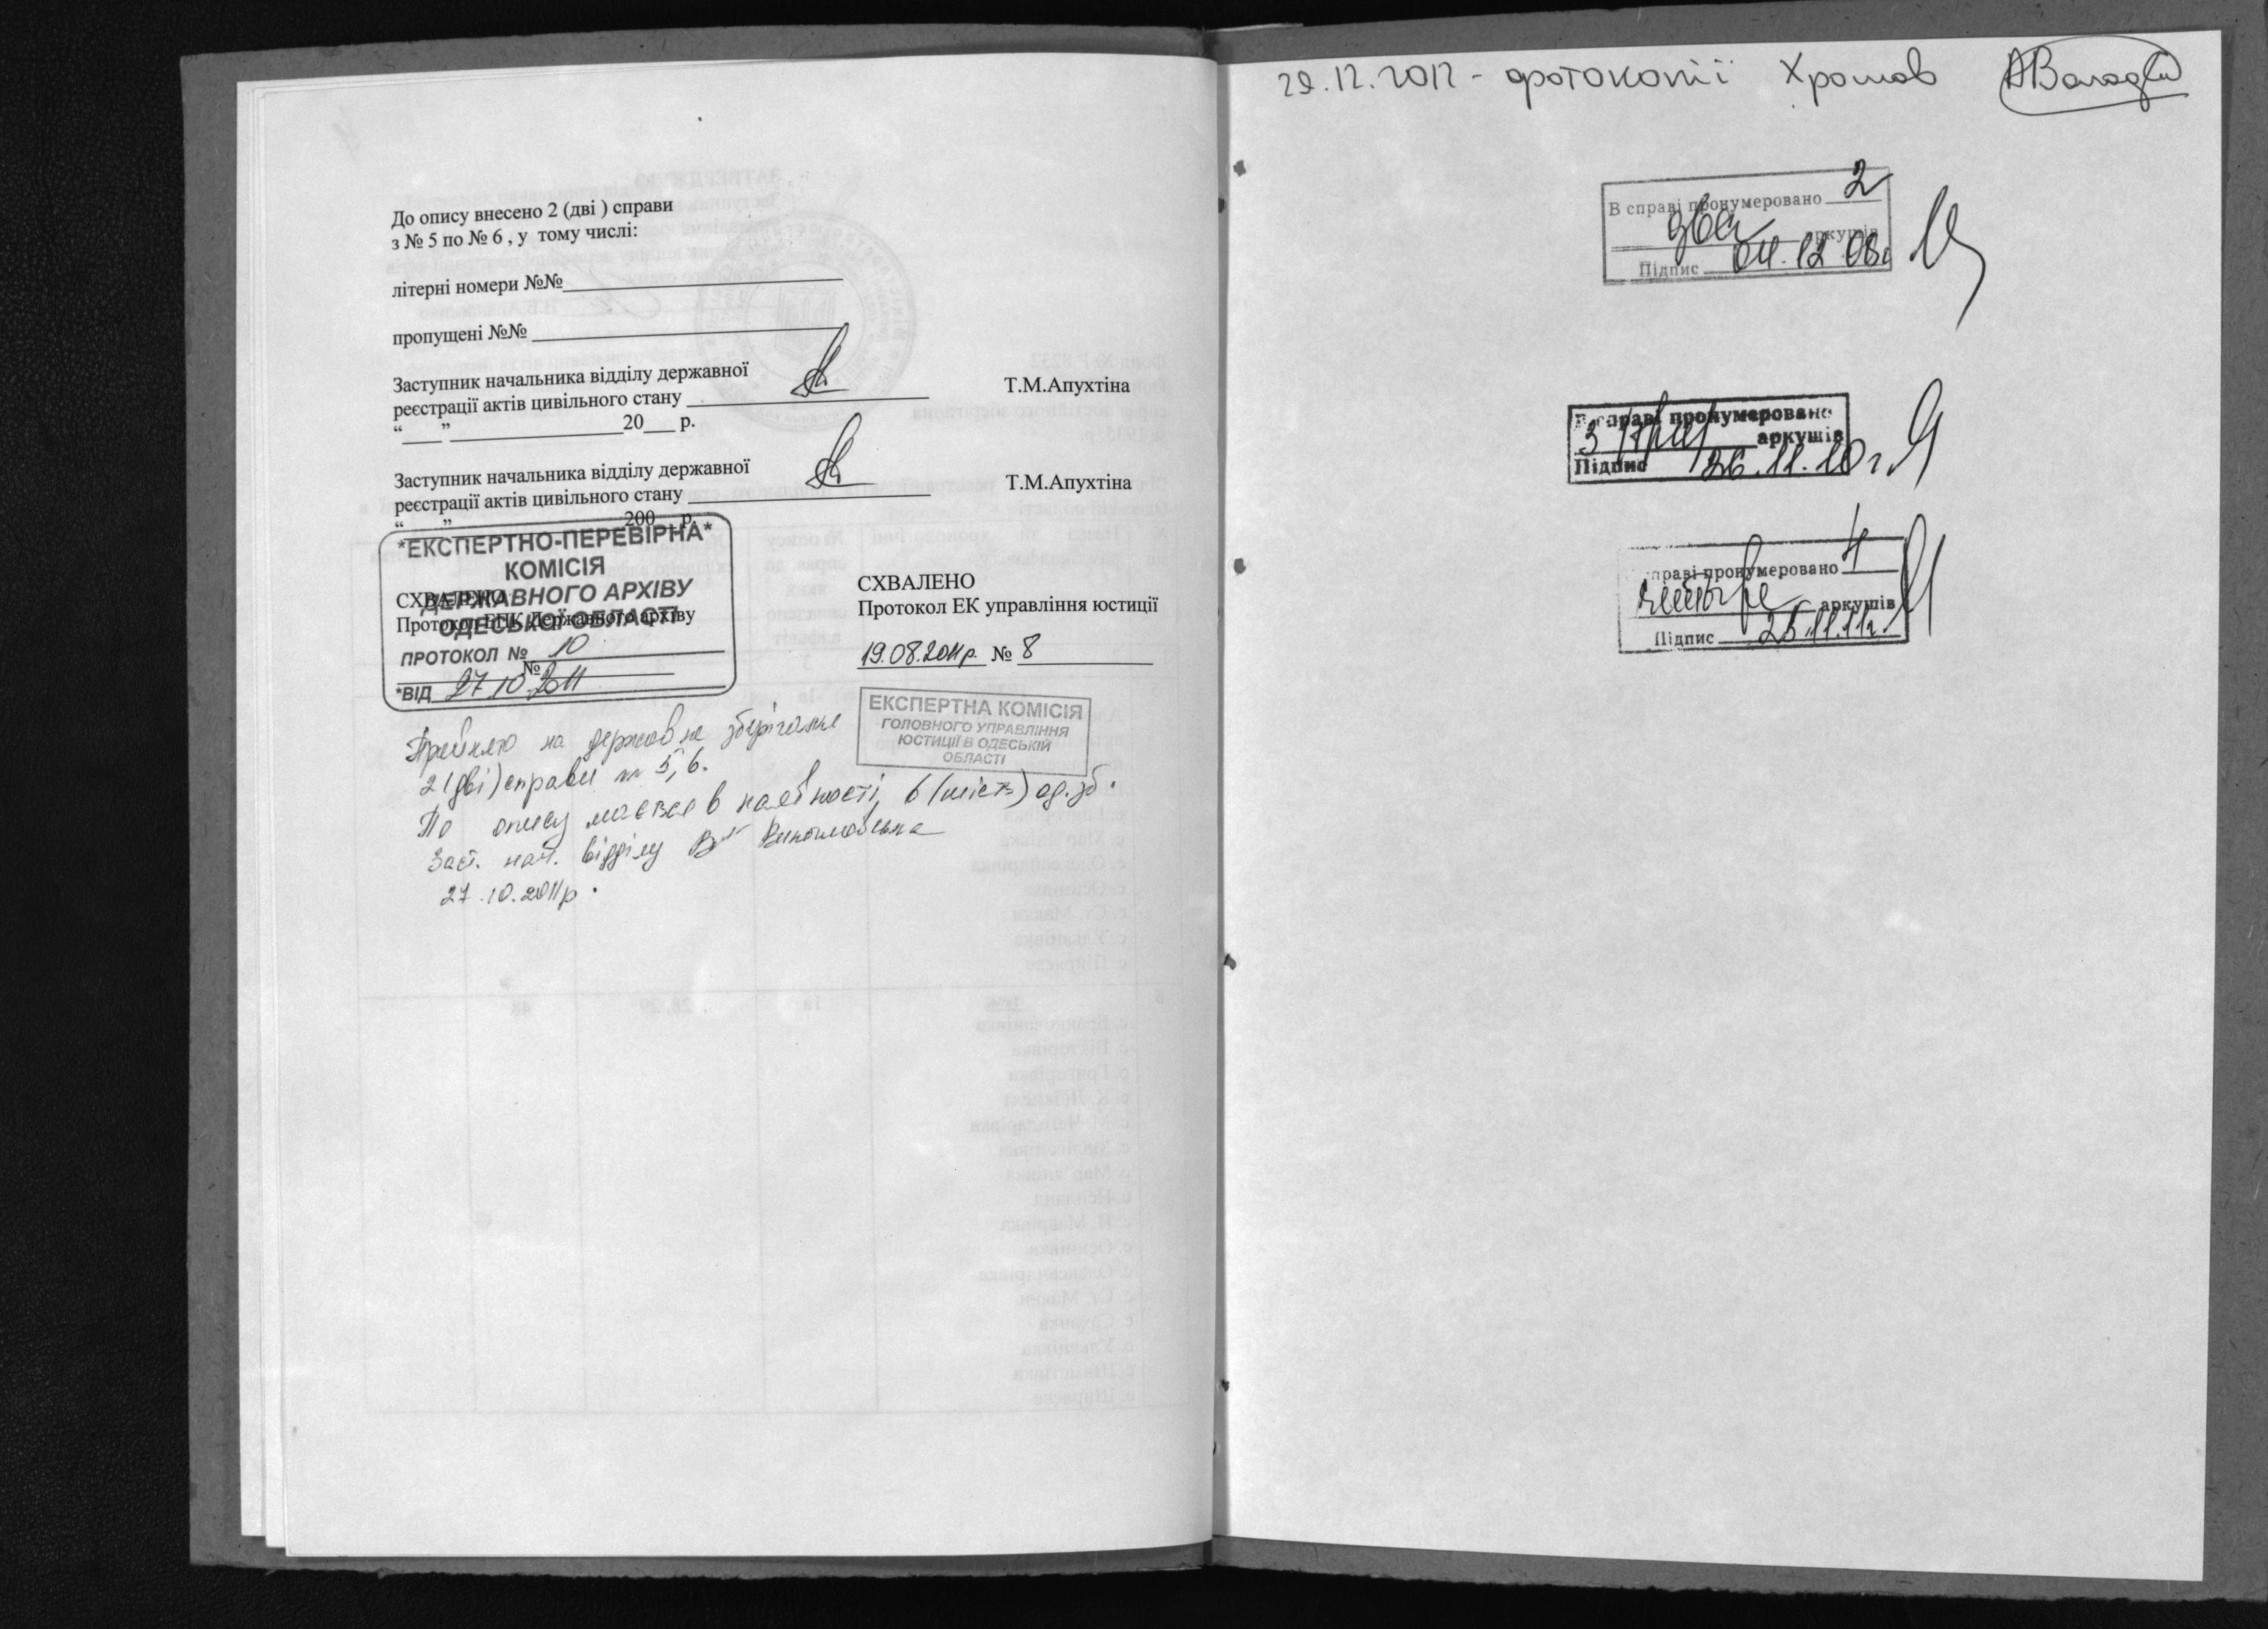 До опису внесено 2 (дві ) справи
з № 5 по № 6 , у тому числі:
літерні номери №№
пропущені №№
Заступник начальника відділу державної
реєстрації актів цивільного стану Т.М.Апухтіна
“ ” 20 р.
Заступник начальника відділу державної
реєстрації актів цивільного стану Т.М.Апухтіна
“ ” 200 р.
*ЕКСПЕРТНО-ПЕРЕВІРНА*
КОМІСІЯ
ДЕРЖАВНОГО АРХІВУ
ОДЕСЬКОЇ ОБЛАСТІ
ПРОТОКОЛ № 10
*ВІД 27.10.2011
СХВАЛЕНО
Протокол ЕПК Державного архіву
№
СХВАЛЕНО
Протокол ЕК управління юстиції
19.08.2011р. № 8
ЕКСПЕРТНА КОМІСІЯ
ГОЛОВНОГО УПРАВЛІННЯ
ЮСТИЦІЇ В ОДЕСЬКІЙ
ОБЛАСТІ
Прийнято на державне зберігання
2 (дві) справи 5, 6.
По опису мається в наявності 6 (шість) од. зб.
Заст. нач. відділу
27.10.2011р.
29.12.2012 - фотокопії Хромов
В справі пронумеровано 2
два аркушів
Підпис 04.12.08г
В справі пронумеровано
3 (три) аркушів
Підпис 26.11.10г
справі пронумеровано 4
четыре аркушів
Підпис 25.11.11г.